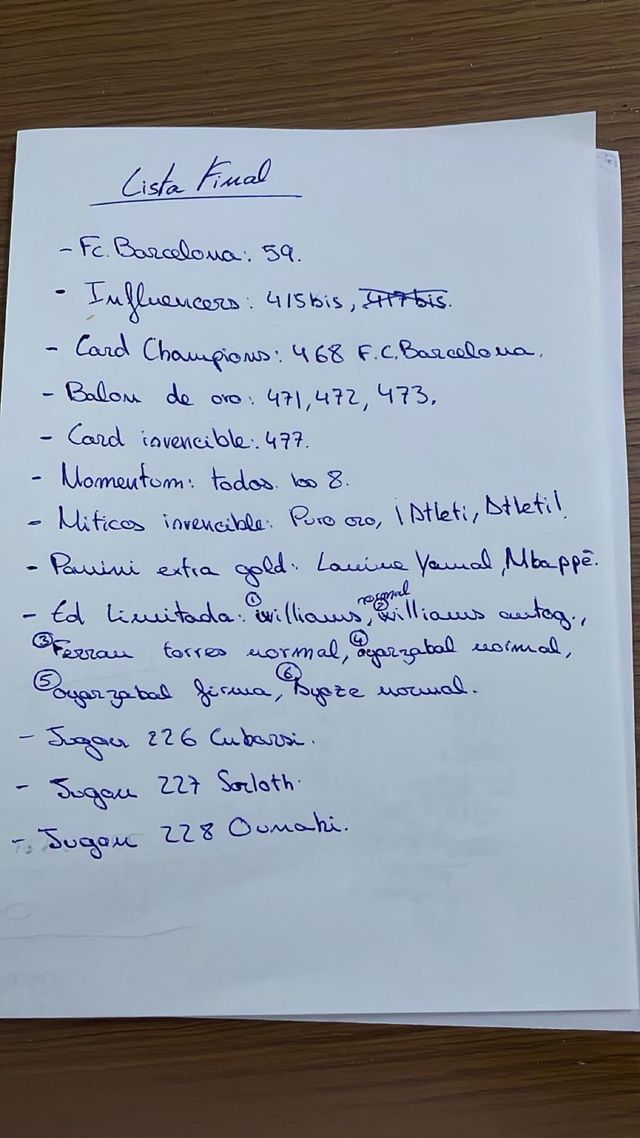 Lista Final
- Fc. Barcelona: 59.
- Influencers: 415bis, 417bis.
- Card Champions: 468 F.C. Barcelona.
- Balon de oro: 471, 472, 473.
- Card invencible: 477.
- Momentum: todos. los 8.
- Miticos invencible: Puro oro, ¡Atleti, Atleti!
- Panini extra gold: Lamine Yamal, Mbappé.
- Ed Limitada: ① williams, normal ② williams autog.,
③ Ferran torres normal, ④ oyarzabal normal,
⑤ oyarzabal firma, ⑥ Ayoze normal.
- Jugon 226 Cubarsi.
- Jugon 227 Sorloth.
- Jugon 228 Ounahi.